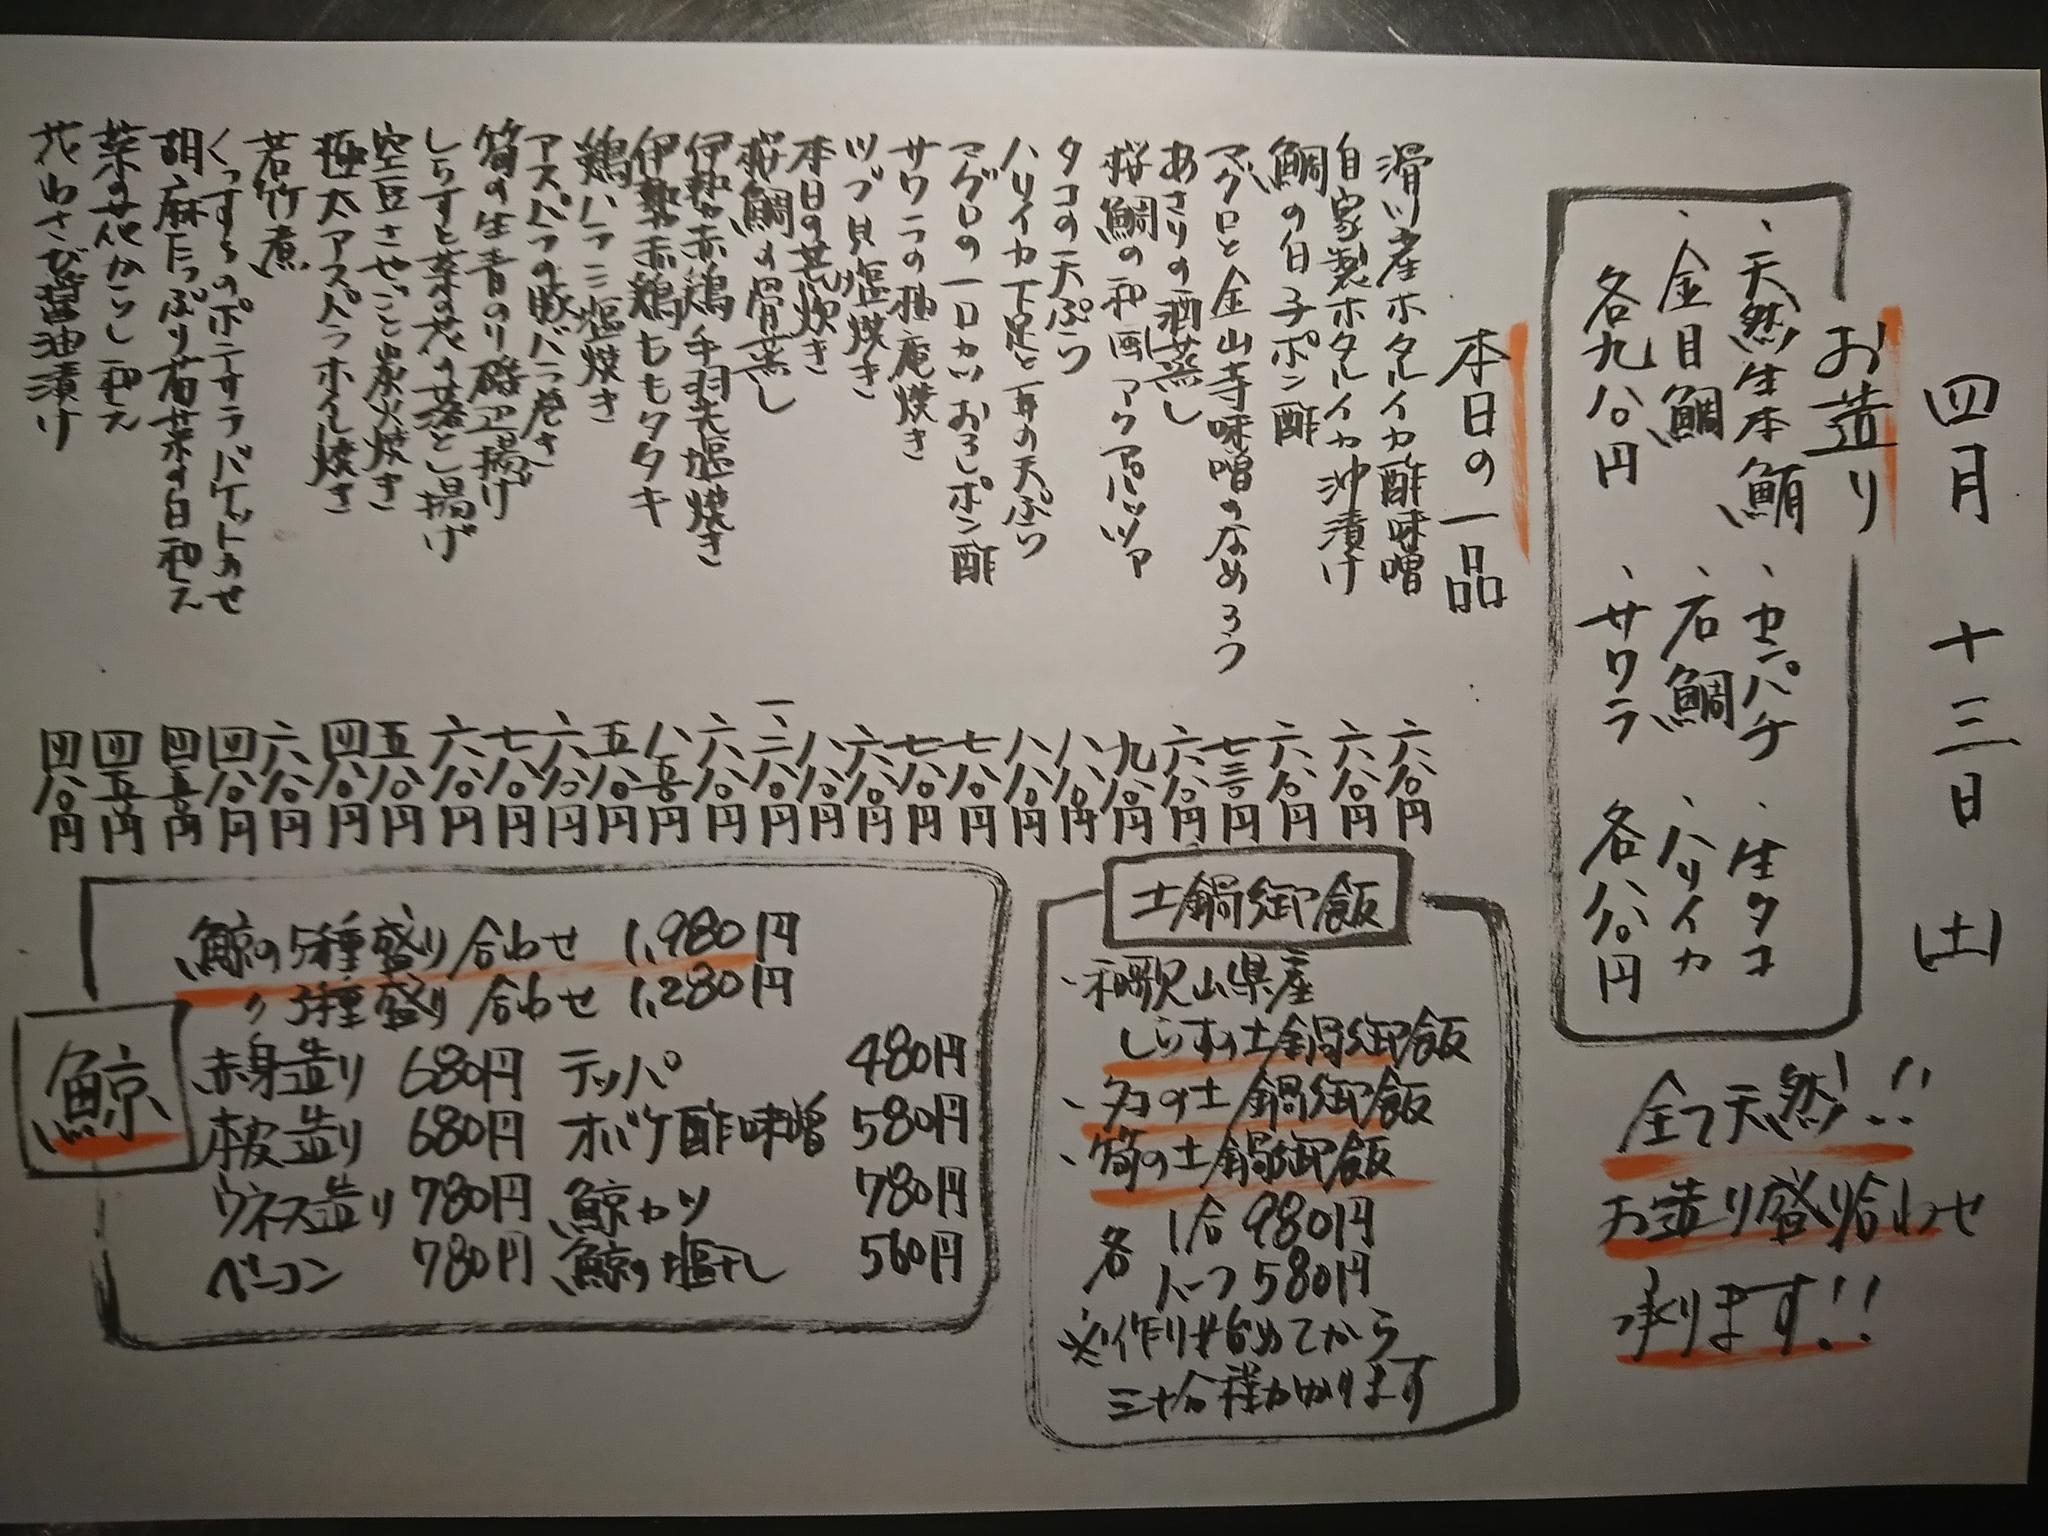 四月 十三日 (土)
お造り
、天然生本鮪 、セバチ 、生タコ
、金目鯛 、石鯛 、ハリイカ
各九八〇円 、サワラ 各八八〇円
全て天然!!
お造り盛り合わせ
承ります!!
本日の一品
滑川産ホタルイカ酢味噌 六八〇円
自家製ホタルイカ沖漬け 六八〇円
鯛の白子ポン酢 六八〇円
マグロと金山寺味噌のなめろう 七三〇円
あさりの酒蒸し 六八〇円
桜鯛の和風アクアパッツア 九八〇円
タコの天ぷら 八八〇円
ハリイカ下足と耳の天ぷら 八八〇円
マグロの一口カツおろしポン酢 七八〇円
サワラの柚庵焼き 七八〇円
ツブ貝塩焼き 六八〇円
本日の煮炊き 八八〇円
桜鯛の骨蒸し 一、二八〇円
伊勢赤鶏手羽先塩焼き 六八〇円
伊勢赤鶏ももタタキ 八五〇円
鶏ハラミ塩焼き 五八〇円
アスパラの豚バラ巻き 六八〇円
筍の生青のり磯辺揚げ 七八〇円
しらすと菜の花の落とし揚げ 六八〇円
空豆さやごと炭火焼き 五八〇円
極太アスパラホイル焼き 四八〇円
若竹煮 六八〇円
くんすものポテサラバケットのせ 四八〇円
胡麻たっぷり菊菜の白和え 四五〇円
菜の花からし和え 四五〇円
花わさび醤油漬け 四八〇円
土鍋御飯
、和歌山県産
しらすの土鍋御飯
、タコの土鍋御飯
、筍の土鍋御飯
各 1合 980円
ハーフ 580円
※作り始めてから
三十分程かかります
鯨
鯨の5種盛り合わせ 1,980円
〃 3種盛り合わせ 1,280円
赤身造り 680円 テッパ 480円
本皮造り 680円 オバケ酢味噌 580円
ウネス造り 780円 鯨カツ 780円
ベーコン 780円 鯨の塩干し 560円